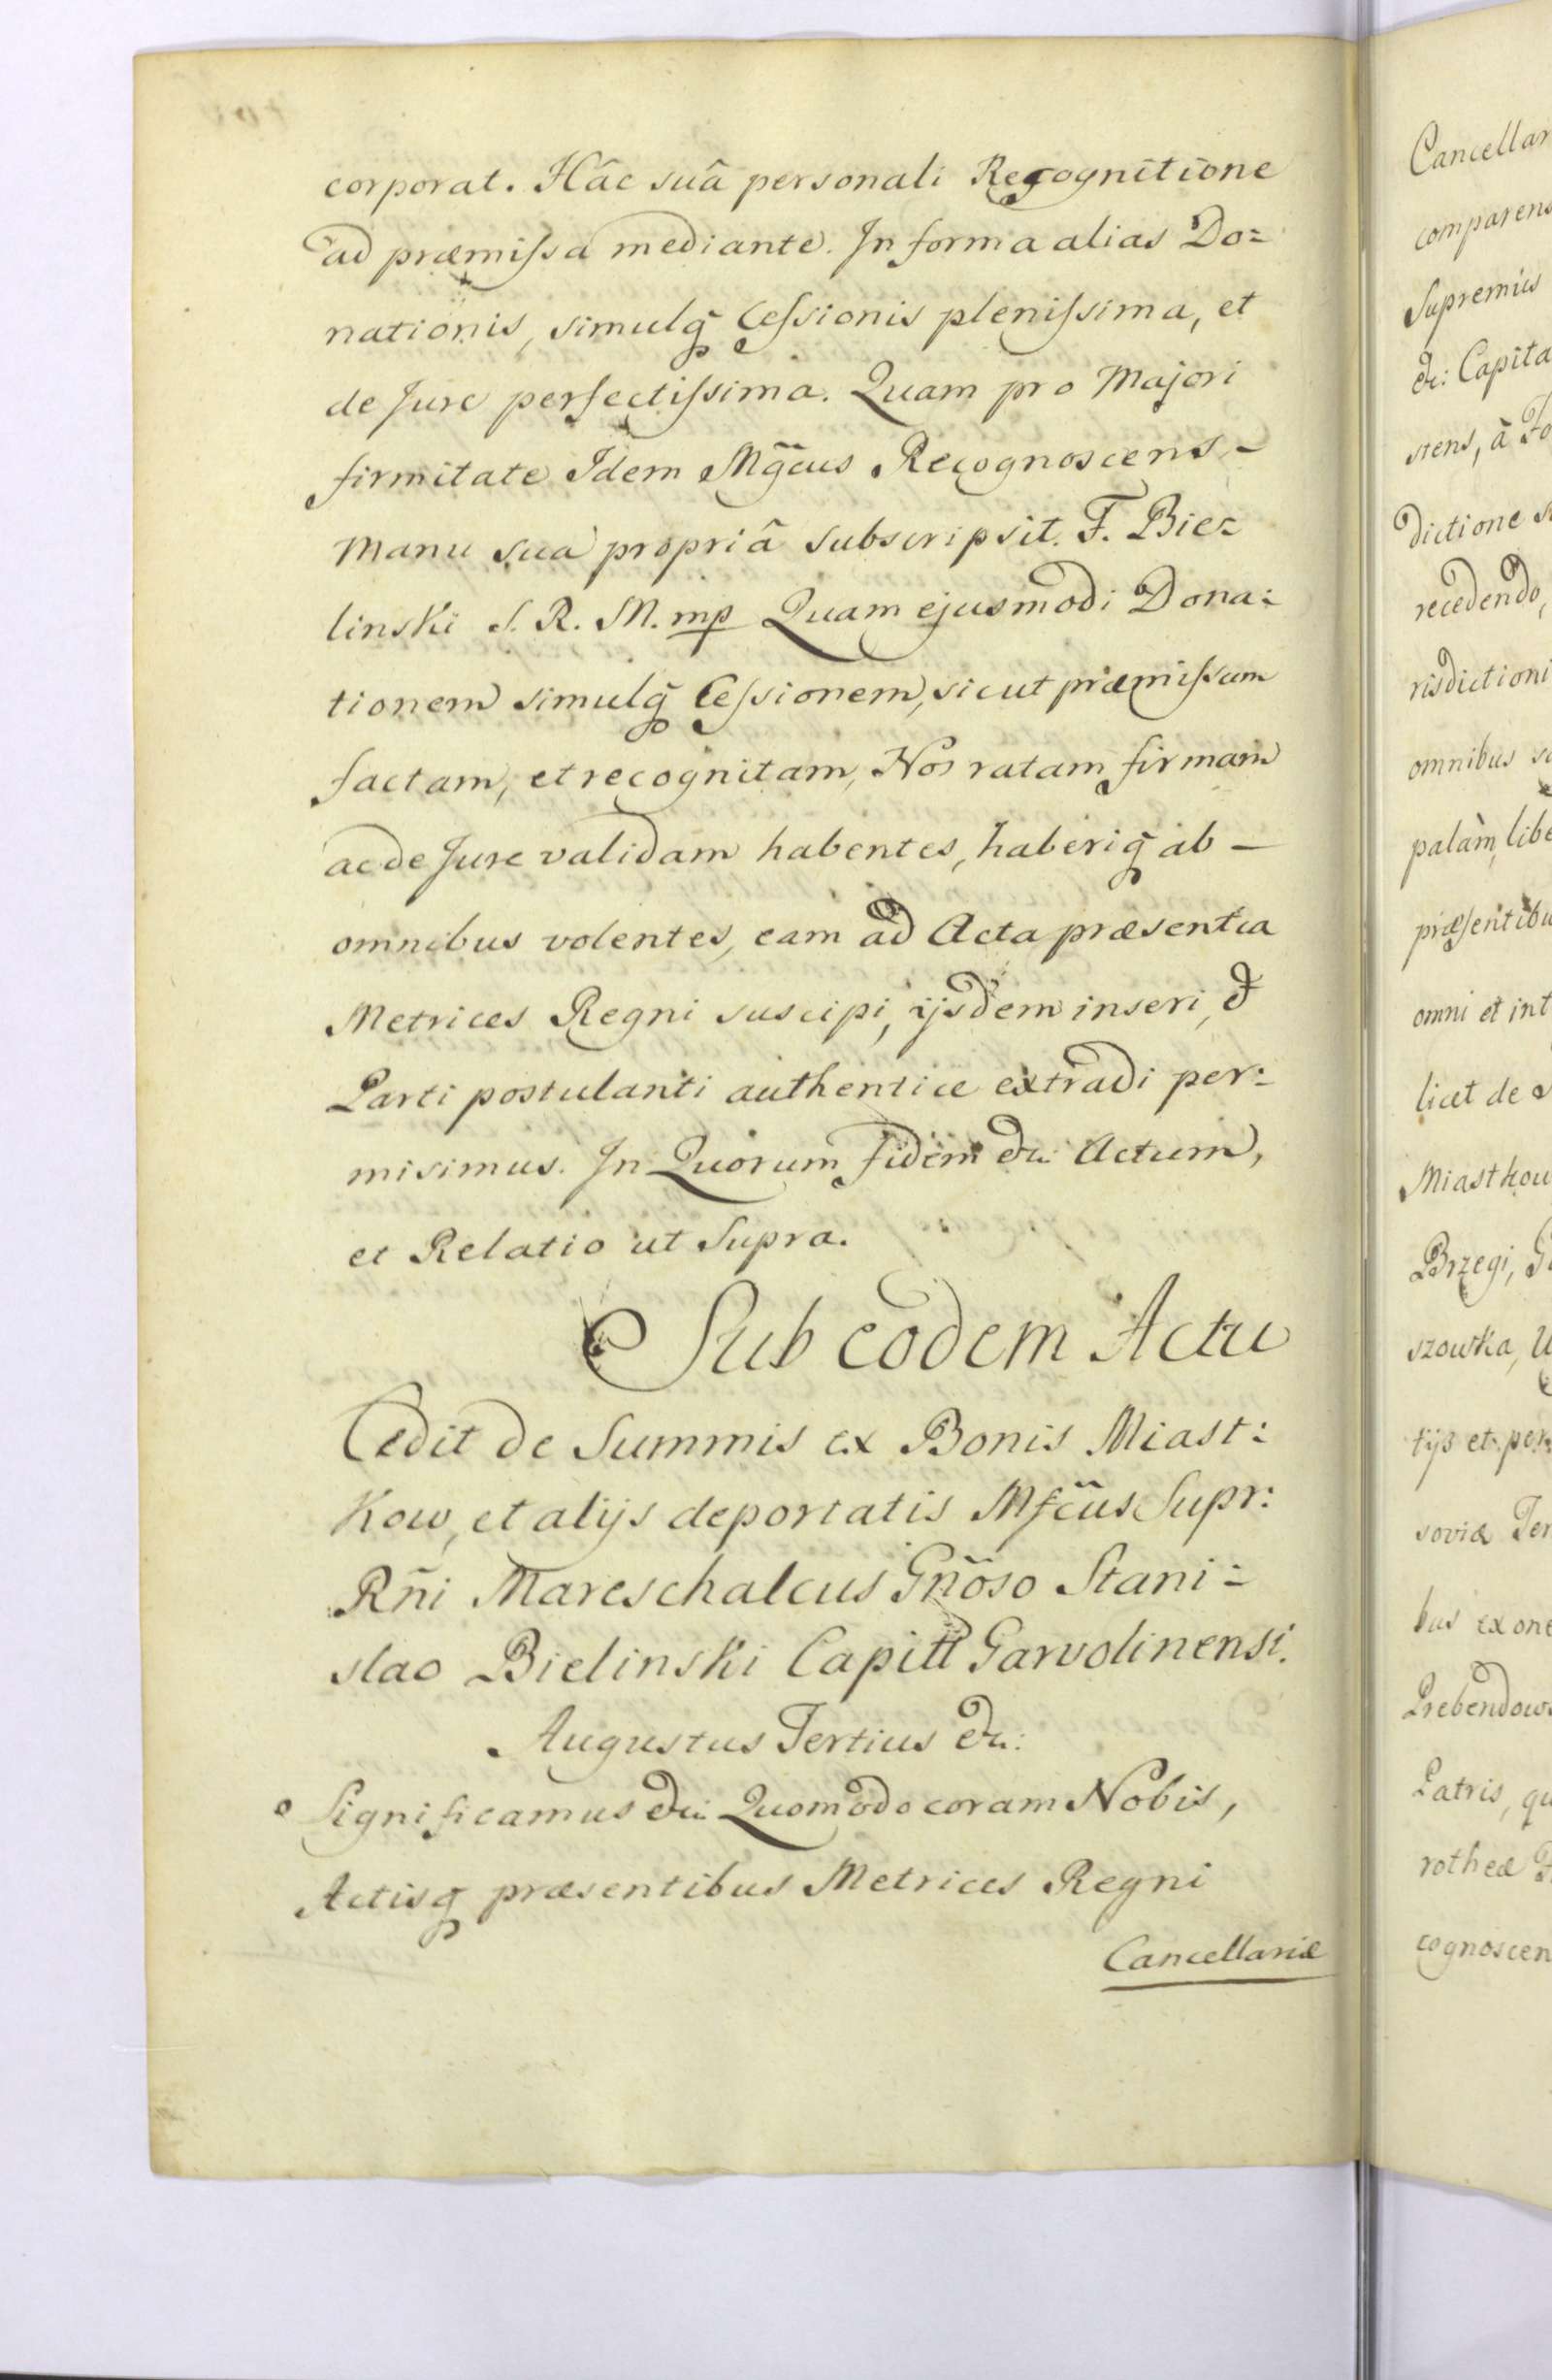 corporat. Hâc suâ personali Recognitione
ad præmissa mediante. In forma alias Do=
nationis, simulq̃ Cessionis plenissima, et
de Jure perfectissima. Quam pro Majori
firmitate Idem Mg̃cus Recognoscens –
manu sua propriâ subscripsit. F. Bie=
linski S. R. M. mp Quam ejusmodi Dona=
tionem simulq̃ Cessionem, sicut præmissum
factam, et recognitam, Nos ratam firmam
ac de Jure validam habentes, haberiq̃ ab –
omnibus volentes, eam ad Acta præsentia
Metrices Regni suscipi, ijsdem inseri, &
Parti postulanti authentice extradi per=
misimus. In Quorum fidem &c: Actum,
et Relatio ut Supra.
Sub eodem Actu
Cedit de Summis ex Bonis Miast:
kow, et alijs deportatis Mfc̃us Supr:
Rñi Mareschalcus Gñoso Stani=
slao Bielinski Capitt Garvolinensi.
Augustus Tertius &c:
Significamus &c: Quomodo coram Nobis,
Actisq̃ præsentibus Metrices Regni
Cancellariæ
Cancellar
comparens
Supremus
&c: Capita
stens, à Fo
dictione s
recedendo,
risdictioni
omnibus sc
palàm, libe
præsentibu
omni et int
licet de
Miastkow
Brzegi, G
szowka, U
tijs et per
soviæ Ter
bus ex one
Prebendows
Patris, qu
rotheæ
cognoscen